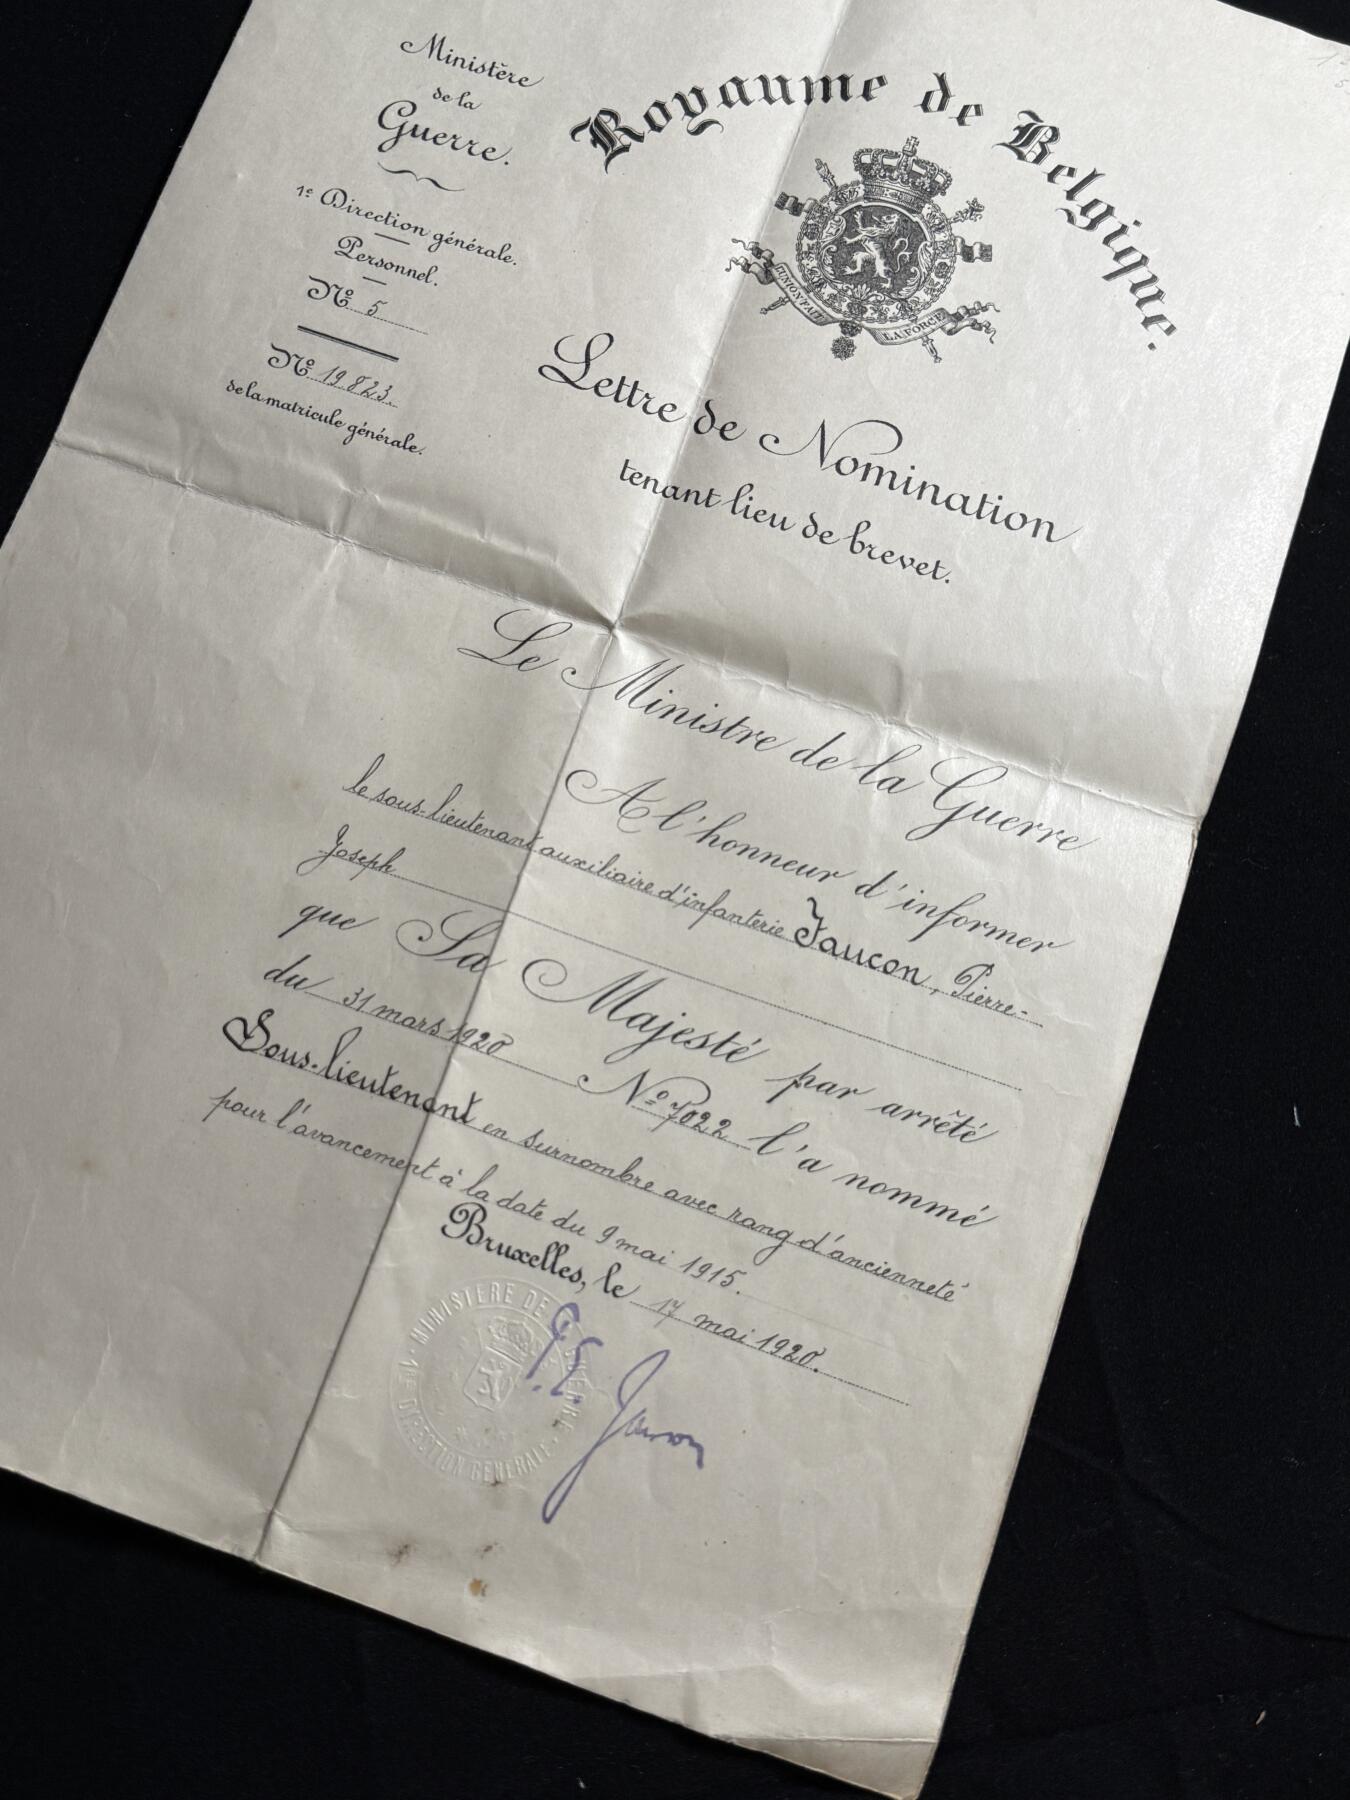 Ministère
de la
Guerre.
1e Direction générale.
Personnel.
No 5
No 19823.
de la matricule générale.
Royaume de Belgique.
L'UNION FAIT LA FORCE
Lettre de Nomination
tenant lieu de brevet.
Le Ministre de la Guerre
A l'honneur d'informer
le sous-lieutenant auxiliaire d'infanterie Faucon, Pierre-
Joseph
que Sa Majesté par arrêté
du 31 mars 1920 No 7022 l'a nommé
Sous-lieutenant en surnombre avec rang d'ancienneté
pour l'avancement à la date du 9 mai 1915.
Bruxelles, le 17 mai 1920.
MINISTERE DE LA GUERRE
1RE DIRECTION GENERALE